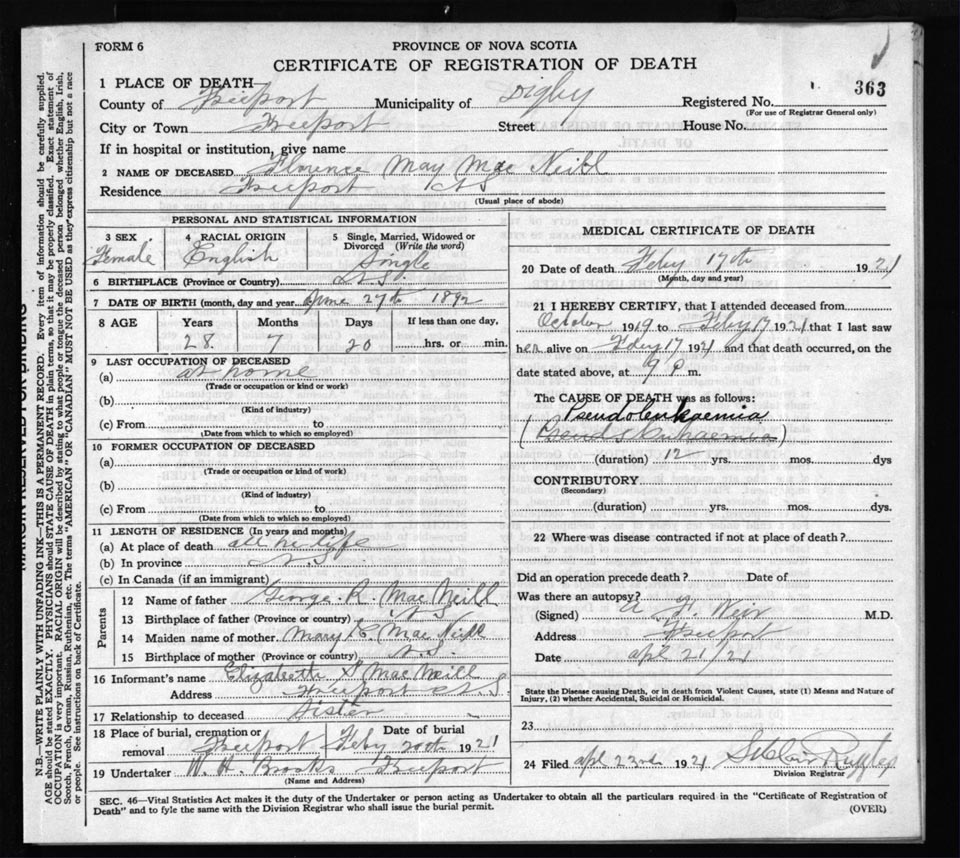 FORM 6
PROVINCE OF NOVA SCOTIA
CERTIFICATE OF REGISTRATION OF DEATH
363
1 PLACE OF DEATH
County of Freeport Municipality of Digby Registered No.
(For use of Registrar General only)
City or Town Freeport Street House No.
If in hospital or institution, give name
2 NAME OF DECEASED Florence May Mac Neill
Residence Freeport N S
(Usual place of abode)
PERSONAL AND STATISTICAL INFORMATION
3 SEX 4 RACIAL ORIGIN 5 Single, Married, Widowed or Divorced (Write the word)
Female English Single
6 BIRTHPLACE (Province or Country) N.S.
7 DATE OF BIRTH (month, day and year) June 27th 1892
8 AGE Years Months Days If less than one day,
28 7 20 hrs. or min.
9 LAST OCCUPATION OF DECEASED
(a) at home
(Trade or occupation or kind of work)
(b)
(Kind of industry)
(c) From to
(Date from which to which so employed)
10 FORMER OCCUPATION OF DECEASED
(a)
(Trade or occupation or kind of work)
(b)
(Kind of industry)
(c) From to
(Date from which to which so employed)
11 LENGTH OF RESIDENCE (In years and months)
(a) At place of death all her life
(b) In province N.S.
(c) In Canada (if an immigrant)
Parents
12 Name of father George. R. Mac Neill
13 Birthplace of father (Province or country) N S
14 Maiden name of mother Mary E. Mac Neill
15 Birthplace of mother (Province or country) N.S.
16 Informant's name Elizabeth Mac Neill
Address Freeport N.S.
17 Relationship to deceased Sister
18 Place of burial, cremation or removal Freeport Date of burial Feby 20th 1921
19 Undertaker W. H. Brooks Freeport
(Name and Address)
MEDICAL CERTIFICATE OF DEATH
20 Date of death Feby 17th 1921
(Month, day and year)
21 I HEREBY CERTIFY, that I attended deceased from
October 1919 to Feby 17 1921 that I last saw
her alive on Feby 17 1921 and that death occurred, on the
date stated above, at 9 P m.
The CAUSE OF DEATH was as follows:
Pseudoleukaemia
(Pseudoleukaemia)
(duration) 12 yrs. mos. dys
CONTRIBUTORY
(Secondary)
(duration) yrs. mos. dys.
22 Where was disease contracted if not at place of death?
Did an operation precede death? Date of
Was there an autopsy?
(Signed) A. F. Weir M.D.
Address Freeport
Date apl 21/21
State the Disease causing Death, or in death from Violent Causes, state (1) Means and Nature of
Injury, (2) whether Accidental, Suicidal or Homicidal.
23
24 Filed apl 23rd 1921 St Clair Ruggles
Division Registrar
SEC. 46—Vital Statistics Act makes it the duty of the Undertaker or person acting as Undertaker to obtain all the particulars required in the "Certificate of Registration of
Death" and to fyle the same with the Division Registrar who shall issue the burial permit.
(OVER)
MARGIN RESERVED FOR BINDING
N.B.—WRITE PLAINLY WITH UNFADING INK—THIS IS A PERMANENT RECORD. Every item of information should be carefully supplied.
AGE should be stated EXACTLY. PHYSICIANS should STATE CAUSE OF DEATH in plain terms, so that it may be properly classified. Exact statement of
OCCUPATION is very important. RACIAL ORIGIN will be described by stating to what people or tongue the deceased person belonged whether English, Irish,
Scotch, French, German, Russian, Ruthenian, etc. The terms "AMERICAN" OR "CANADIAN" MUST NOT BE USED as they express citizenship but not a race
or people. See instructions on back of Certificate.